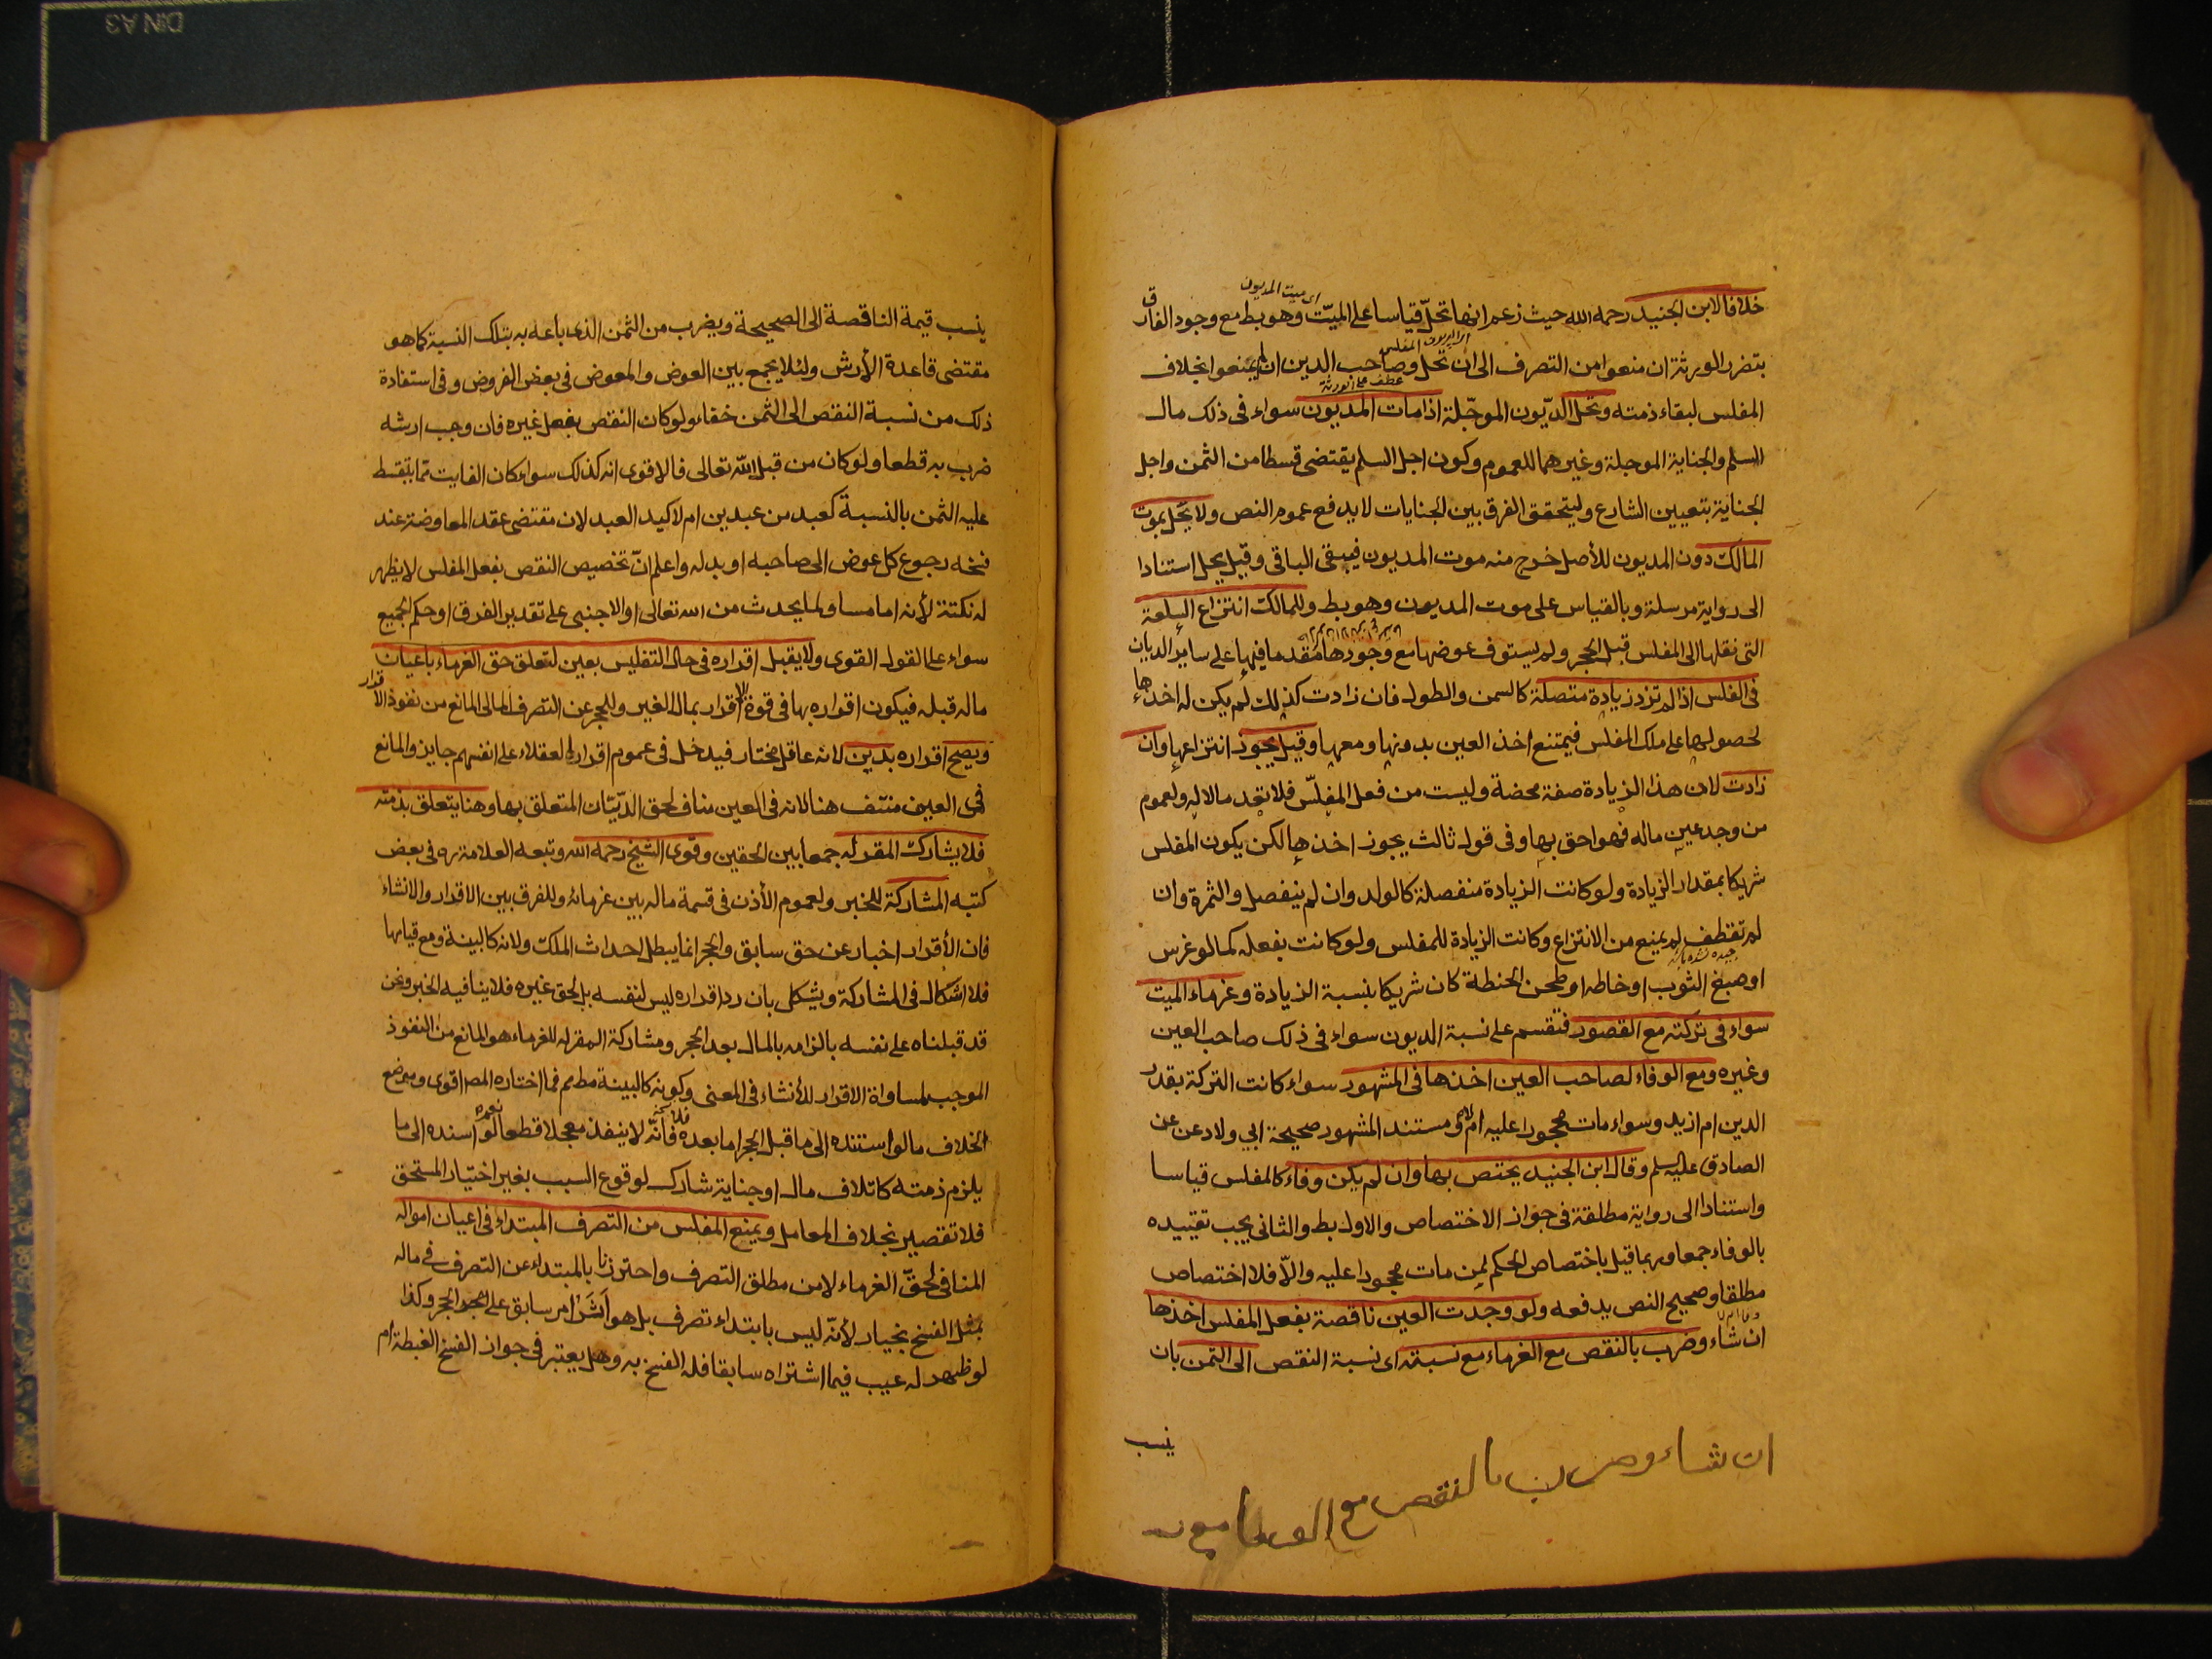 خلافا لابن الجنيد رحمه الله حيث زعم انها تحلّ قياسا على الميّت وهو بط مع وجود الفارق
اى ميت المديون
بتضرر الورثة ان منعوا من التصرف الى ان تحل وصاحب الدين ان لم يمنعوا بخلاف
عطف على الورثة
المفلس لبقاء ذمته وتحل الديّون الموجّلة اذا مات المديون سواء فى ذلك مال
السلم والجناية الموجلة وغيرهما للعموم وكون اجل السلم يقتضى قسطا من الثمن واجل
الجناية بتعيين الشارع وليتحقق الفرق بين الجنايات لا يدفع عموم النص ولا تحل بموت
المالك دون المديون للأصل خرج منه موت المديون فيبقى الباقى وقيل يحل استنادا
الى رواية مرسلة وبالقياس على موت المديون وهو بط وللمالك انتزاع السلعة
التى نقلها الى المفلس قبل الحجر ولم يستوف عوضها مع وجودها مقدما فيها على ساير الديان
فى الفلس اذا لم تزد زيادة متصلة كالسمن والطول فان زادت كذلك لم يكن له اخذها
لحصولها على ملك المفلس فيمتنع اخذ العين بدونها ومعها وقيل يجوز انتزاعها وان
زادت لان هذا الزيادة صفة محضة وليست من فعل المفلّس فلا تعد مالا له ولعموم
من وجد عين ماله فهو احق بها وفى قول ثالث يجوز اخذها لكن يكون المفلس
شريكا بمقدار الزيادة ولو كانت الزيادة منفصلة كالولد وان لم ينفصل والثمرة وان
لم تقطف لم يمنع من الانتزاع وكانت الزيادة للمفلس ولو كانت بفعله كما لو غرس
او صبغ الثوب او خاطه او طحن الحنطة كان شريكا بنسبة الزيادة وغرماء الميت
سواء فى تركته مع القصور فتقسم على نسبة الديون سواء فى ذلك صاحب العين
وغيره ومع الوفاء لصاحب العين اخذها فى المشهور سواء كانت التركة بقدر
الدين ام ازيد وسواء مات محجورا عليه ام لا ومستند المشهور صحيحة ابي ولاد عن
الصادق عليه السلم وقال ابن الجنيد يختص بها وان لم يكن وفاء كالمفلس قياسا
واستنادا الى رواية مطلقة فى جواز الاختصاص والاول بط والثانى يجب تقييده
بالوفاء جمعا وربما قيل باختصاص الحكم لمن مات محجورا عليه والاّ فلا اختصاص
مطلقا وصحيح النص يدفعه ولو وجدت العين ناقصة بفعل المفلس اخذها
ان شاء وضرب بالنقص مع الغرماء مع نسبته اى نسبة النقص الى الثمن بان
ينسب
ان شاء وضرب بالنقص مع
ينسب قيمة الناقصة الى الصحيحة ويضرب من الثمن الذى باعه به بتلك النسبة كما هو
مقتضى قاعدة الأرش ولئلا يجمع بين العوض والمعوض فى بعض الفروض وفى استفادة
ذلك من نسبة النقص الى الثمن خفاء ولو كان النقص بفعل غيره فان وجب ارشه
ضرب به قطعا ولو كان من قبل الله تعالى فالاقوى انه كذلك سواء كان الفايت مما يتقسط
عليه الثمن بالنسبة كعبد من عبدين ام لا كيد العبد لان مقتضى عقد المعاوضة عند
فسخه رجوع كل عوض الى صاحبه او بدله واعلم انّ تخصيص النقص بفعل المفلس لا يظهر
له نكتة لأنه اما مساو لما يحدث من الله تعالى او الاجنبى على تقدير الفرق او حكم الجميع
سواء على القول القوى ولا يقبل اقراره فى حال التفليس بعين لتعلق حق الغرماء باعيان
ماله قبله فيكون اقراره بها فى قوة الاقرار بمال الغير وللحجر عن التصرف المالى المانع من نفوذ الاقرار
ويصح اقراره بدين لانه عاقل مختار فيدخل فى عموم اقرار العقلاء على انفسهم جايز والمانع
فى العين منتف هنا لانه فى العين مناف لحق الديّان المتعلق بها وهنا يتعلق بذمته
فلا يشارك المقر له جمعا بين الحقين وقوى الشيخ رحمه الله وتبعه العلامة ره فى بعض
كتبه المشاركة للخبر ولعموم الأذن فى قسمة ماله بين غرمائه وللفرق بين الاقرار والانشاء
فان الأقرار اخبار عن حق سابق والحجر انما يبطل احداث الملك ولانه كالبينة ومع قيامها
فلا اشكال فى المشاركة ويشكل بان رد اقراره ليس لنفسه بل لحق غيره فلا ينافيه الخبر ونحن
قد قبلناه على نفسه بالزامه بالمال بعد الحجر ومشاركة المقر له للغرماء هو المانع من النفوذ
الموجب لمساواة الاقرار للأنشاء فى المعنى وكونه كالبينة مطم مم فما اختاره المص اقوى وموضع
الخلاف ما لو استنده الى ما قبل الحجر اما بعده فأنّه لا ينفذ معجلا قطعا نعم لو اسنده الى ما
يلزم ذمته كاتلاف مال او جناية شارك لوقوع السبب بغير اختيار المستحق
فلا تقصير بخلاف المعامل ويمنع المفلس من التصرف المبتداء فى اعيان امواله
المنافى لحقّ الغرماء لا من مطلق التصرف واحترزنا بالمبتداء عن التصرف فى ماله
بمثل الفسخ بخيار لأنّه ليس بابتداء تصرف بل هو اثر امر سابق على الحجر وكذا
لو ظهر له عيب فيما اشتراه سابقا فله الفسخ به وهل يعتبر فى جواز الفسخ الغبطة ام